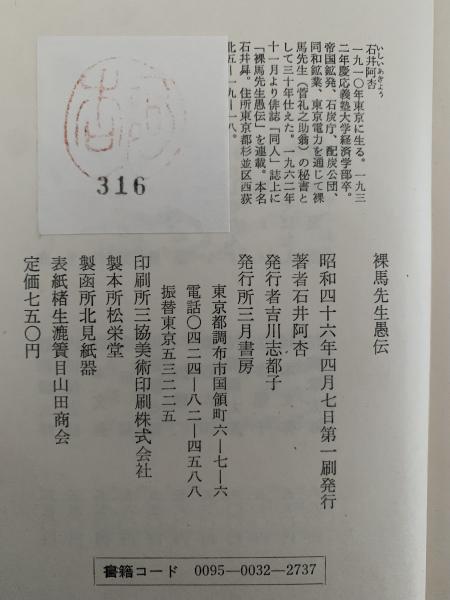 石井阿杏
いしいあきょう
一九一〇年東京に生る。一九三
二年慶応義塾大学経済学部卒。
帝国鉱発、石炭庁、配炭公団、
同和鉱業、東京電力を通じて裸
馬先生(菅礼之助翁)の秘書と
して三十年仕えた。一九六二年
十一月より俳誌「同人」誌上に
「裸馬先生愚伝」を連載。本名
石井昇。住所東京都杉並区西荻
北五—一九—一八。
316
裸馬先生愚伝
昭和四十六年四月七日第一刷発行
著者石井阿杏
発行者吉川志都子
発行所三月書房
東京都調布市国領町六—七—六
電話〇四二四—八二—四五八八
振替東京五三二二五
印刷所三協美術印刷株式会社
製本所松栄堂
製函所北見紙器
表紙楮生漉簀目山田商会
定価七五〇円
書籍コード 0095—0032—2737